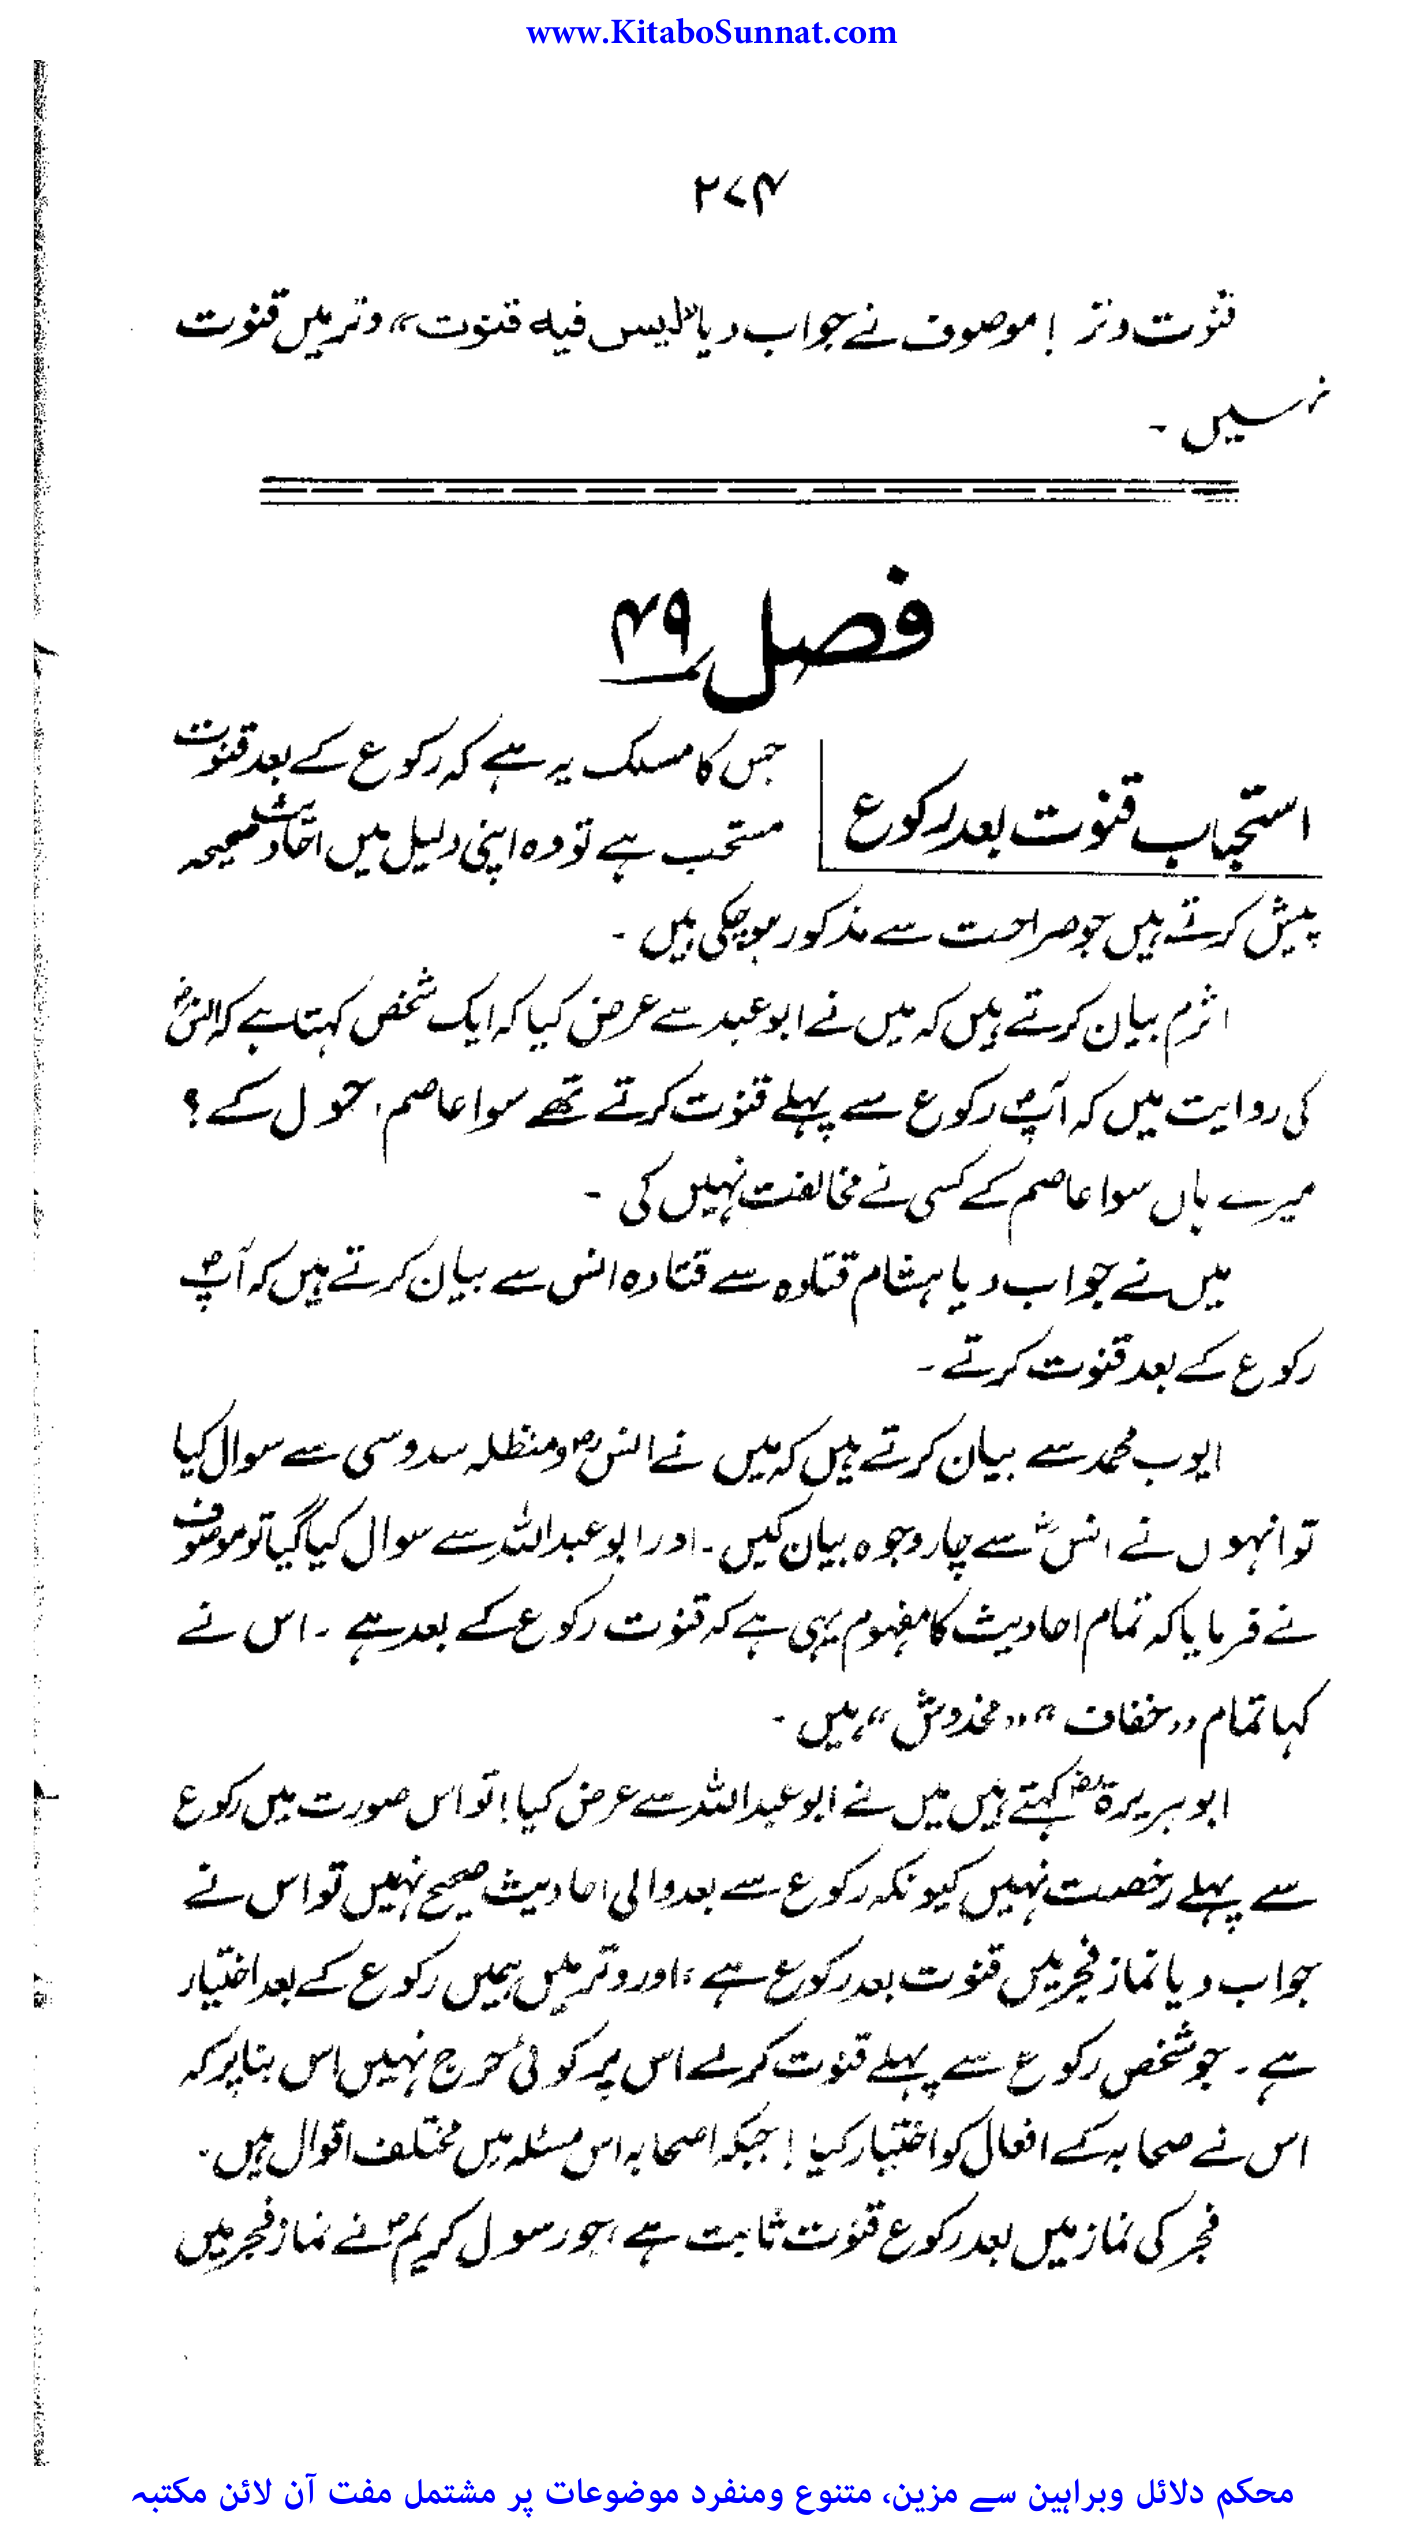 www.KitaboSunnat.com
۲۷۴
قنوت وتر ! موصوف نے جواب دیا "لیس فیه قنوت" وتر میں قنوت
نہیں ۔
فصل ۴۹
جس کا مسلک یہ ہے کہ رکوع کے بعد قنوت
استحباب قنوت بعد رکوع
مستحب ہے تو وہ اپنی دلیل میں احادیث صحیحہ
پیش کرتے ہیں جو صراحت سے مذکور ہو چکی ہیں ۔
اثرم بیان کرتے ہیں کہ میں نے ابو عبد سے عرض کیا کہ ایک شخص کہتا ہے کہ انسؓ
کی روایت میں کہ آپؐ رکوع سے پہلے قنوت کرتے تھے سوا عاصم احول کے ؟
میرے ہاں سوا عاصم کے کسی نے مخالفت نہیں کی ۔
میں نے جواب دیا ہشام قتادہ سے قتادہ انس سے بیان کرتے ہیں کہ آپؐ
رکوع کے بعد قنوت کرتے ۔
ایوب محمد سے بیان کرتے ہیں کہ میں نے انسؓ و منظلہ سدوسی سے سوال کیا
تو انہوں نے انسؓ سے چار وجوہ بیان کیں ۔ اور ابو عبداللہ سے سوال کیا گیا تو موصوف
نے فرمایا کہ تمام احادیث کا مفہوم یہی ہے کہ قنوت رکوع کے بعد ہے ۔ اس نے
کہا تمام "خفاف" "مخدوش" ہیں ۔
ابو ہریرۃؓ کہتے ہیں میں نے ابو عبداللہ سے عرض کیا ! تو اس صورت میں رکوع
سے پہلے رخصت نہیں کیونکہ رکوع سے بعد والی احادیث صحیح نہیں تو اس نے
جواب دیا نماز فجر میں قنوت بعد رکوع ہے ، اور وتر میں ہمیں رکوع کے بعد اختیار
ہے ۔ جو شخص رکوع سے پہلے قنوت کرلے اس پر کوئی حرج نہیں اس بنا پر کہ
اس نے صحابہ کے افعال کو اختیار کیا ! جبکہ اصحابہ اس مسئلہ میں مختلف اقوال ہیں ۔
فجر کی نماز میں بعد رکوع قنوت ثابت ہے ، جو رسول کریمؐ نے نماز فجر میں
محکم دلائل وبراہین سے مزین، متنوع ومنفرد موضوعات پر مشتمل مفت آن لائن مکتبہ